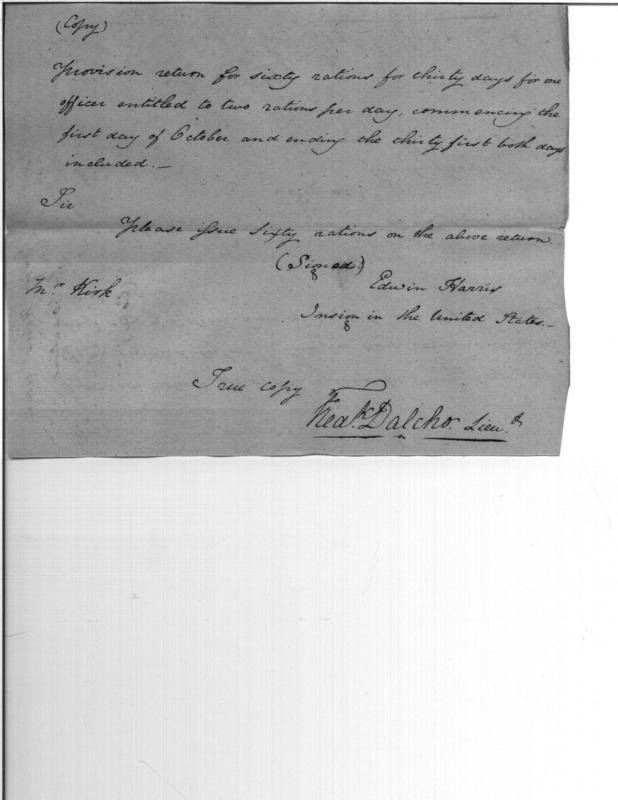 (Copy)
Provision return for sixty rations for thirty days for one
officer entitled to two rations per day, commencing the
first day of October and ending the thirty first both days
included.—
Sir
Please issue sixty rations on the above return
(Signed)
Edwin Harris
Mr Kirk
Insign in the United States.—
True copy
Fredk. Dalcho. Lieut